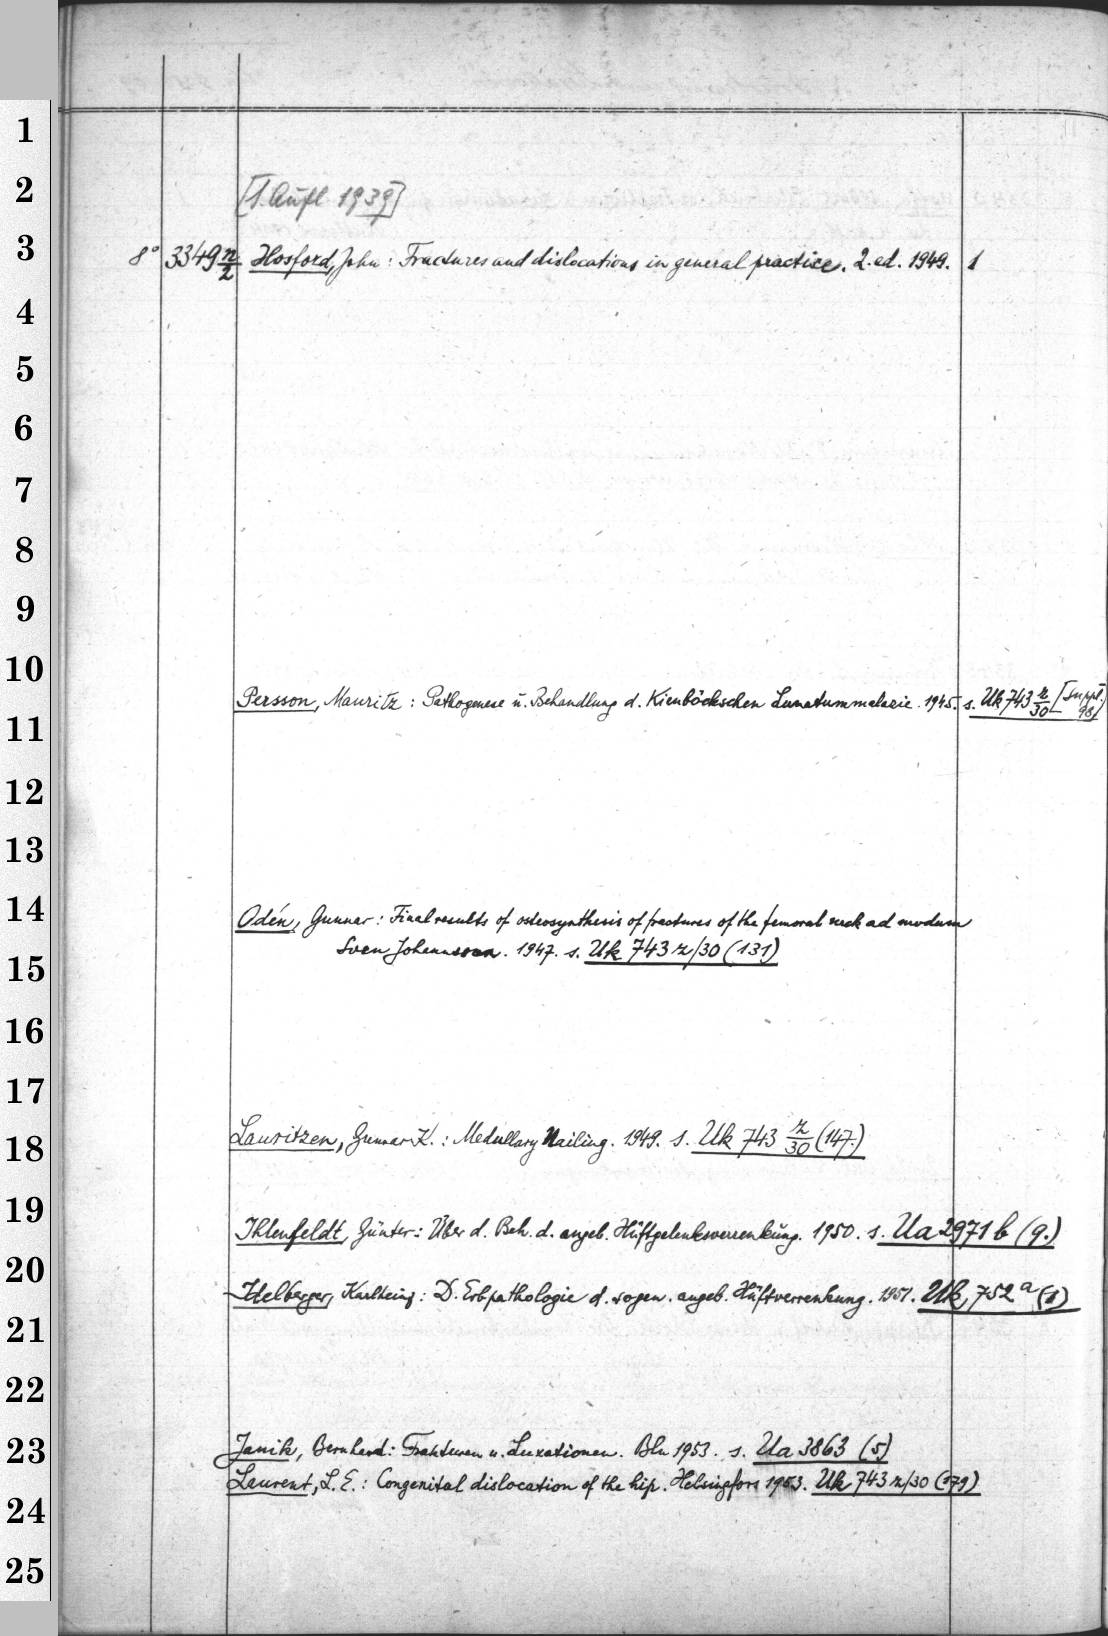 1
2
3
4
5
6
7
8
9
10
11
12
13
14
15
16
17
18
19
20
21
22
23
24
25
[1. Aufl 1939]
8° 3349 n/2 Hosford, John: Fractures and dislocations in general practice. 2. ed. 1949. 1
Persson, Mauritz: Pathogenese u. Behandlung d. Kienböckschen Lunatummalacie. 1945. s. Uk 743 z/30 [Suppl. 98]
Odén, Gunnar: Final results of osteosynthesis of fractures of the femoral neck ad modum
Sven Johansson. 1947. s. Uk 743 z/30 (131)
Lauritzen, Gunnar K.: Medullary Nailing. 1949. s. Uk 743 z/30 (147.)
Ihlenfeldt, Günter: Über d. Beh. d. angeb. Hüftgelenksverrenkung. 1950. s. Ua 2971 b (9.)
Idelberger, Karlheinz: D. Erbpathologie d. sogen. angeb. Hüftverrenkung. 1951. Uk 752 a (1)
Janik, Bernhard: Frakturen u. Luxationen. Bln 1953. s. Ua 3863 (5)
Laurent, L. E.: Congenital dislocation of the hip. Helsingfors 1953. Uk 743 z/30 (179)